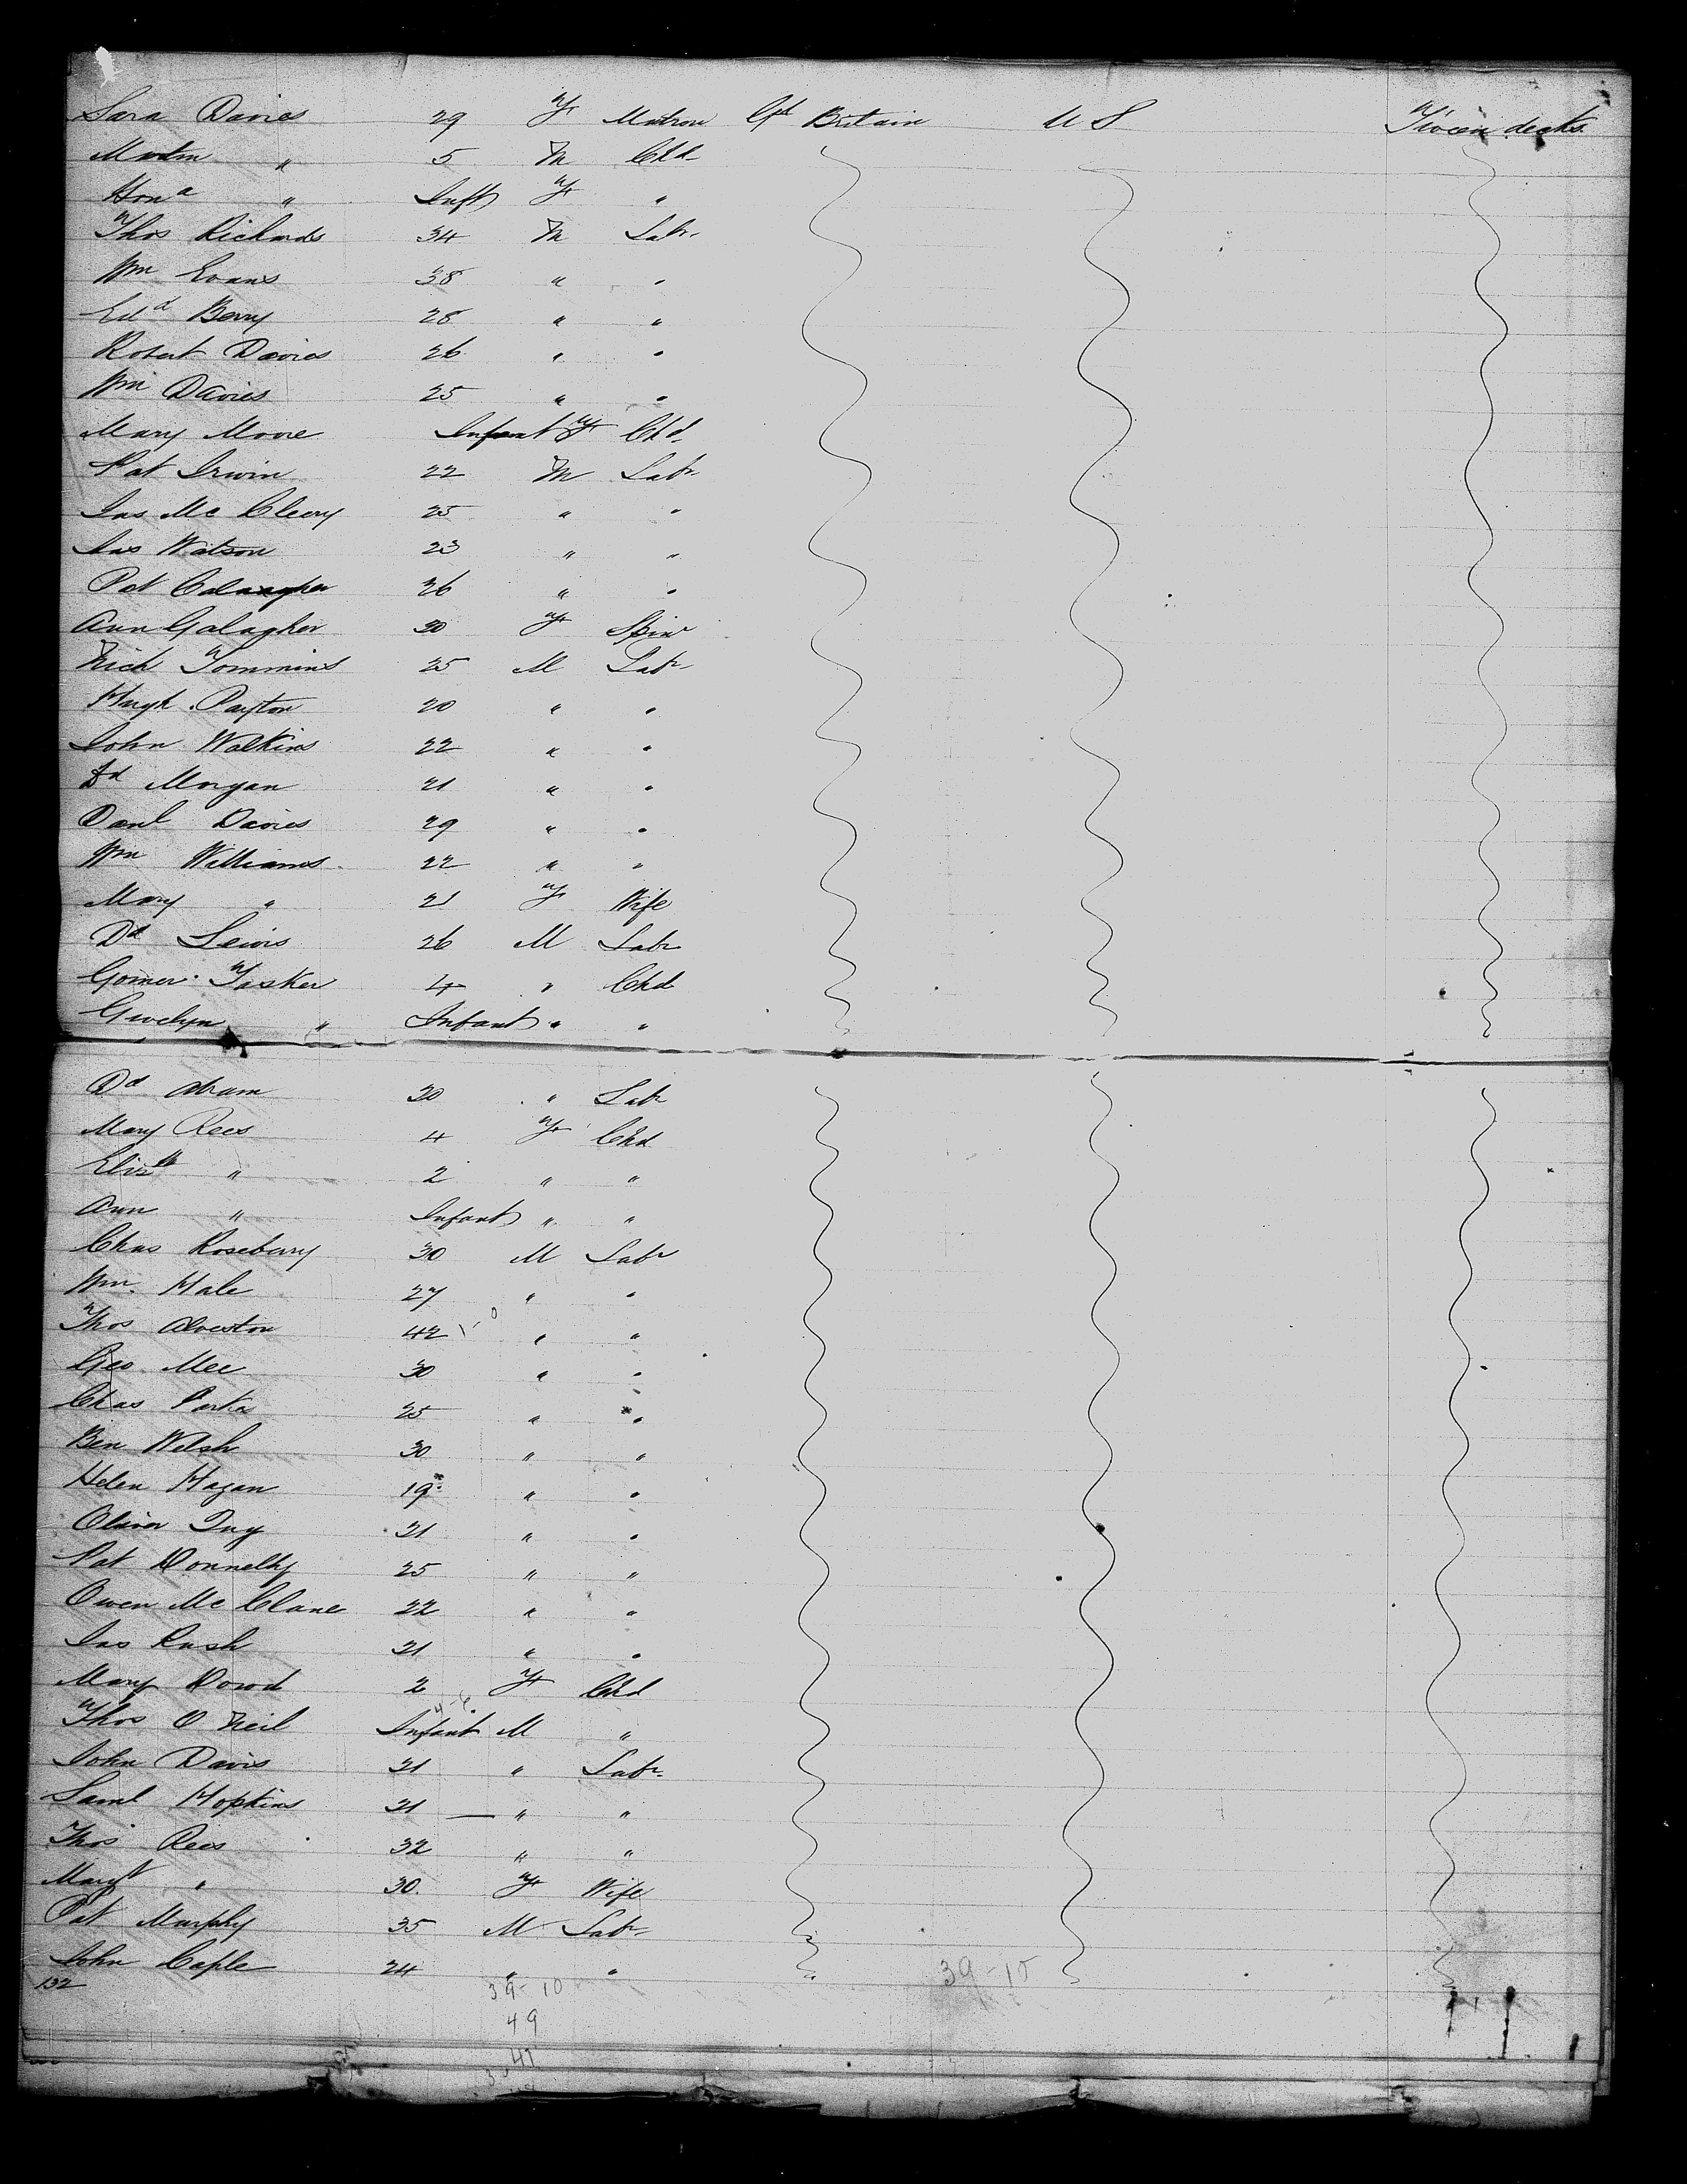 Sara Davies 29 F Matron Gt Britain U S 'Tween decks
Martin " 5 M Chd
Hona " Inft F "
Thos Richards 34 M Labr
Wm Evans 38 " "
Edd Berry 28 " "
Robert Davies 26 " "
Wm Davies 25 " "
Mary Moore Infant F Chd
Pat Irwin 22 M Labr
Jas Mc Cleery 25 " "
Jas Watson 23 " "
Pat 26 " "
Ann Galagher 20 F Spinr
Nich Tommins 25 M Labr
Hugh Payton 20 " "
John Watkins 22 " "
Dd Morgan 21 " "
Danl Davies 29 " "
Wm Williams 22 " "
Mary " 21 F Wife
Dd Lewis 26 M Labr
Gomer Tasker 4 " Chd
Gwelyn " Infant " "
Dd Abram 20 " Labr
Mary Rees 4 F Chd
Elizth " 2 " "
Ann " Infant " "
Chas Roseberry 30 M Labr
Wm. Hale 27 " "
Thos Alveston 42 " "
Geo Mee 30 " "
Chas Parker 25 " "
Ben Welsh 30 " "
Helen Hagan 19 " "
Oliver 21 " "
Pat Donnelly 25 " "
Owen Mc Clane 22 " "
Jas Rush 21 " "
Mary Dowd 2 F Chd
Thos O Neil Infant M "
John Davis 21 " Labr
Saml Hopkins 21 " "
Thos Rees 32 " "
Margt " 30 F Wife
Pat Murphy 35 M Labr
John Caple 24 " "
132 39-10 39-10
49
47